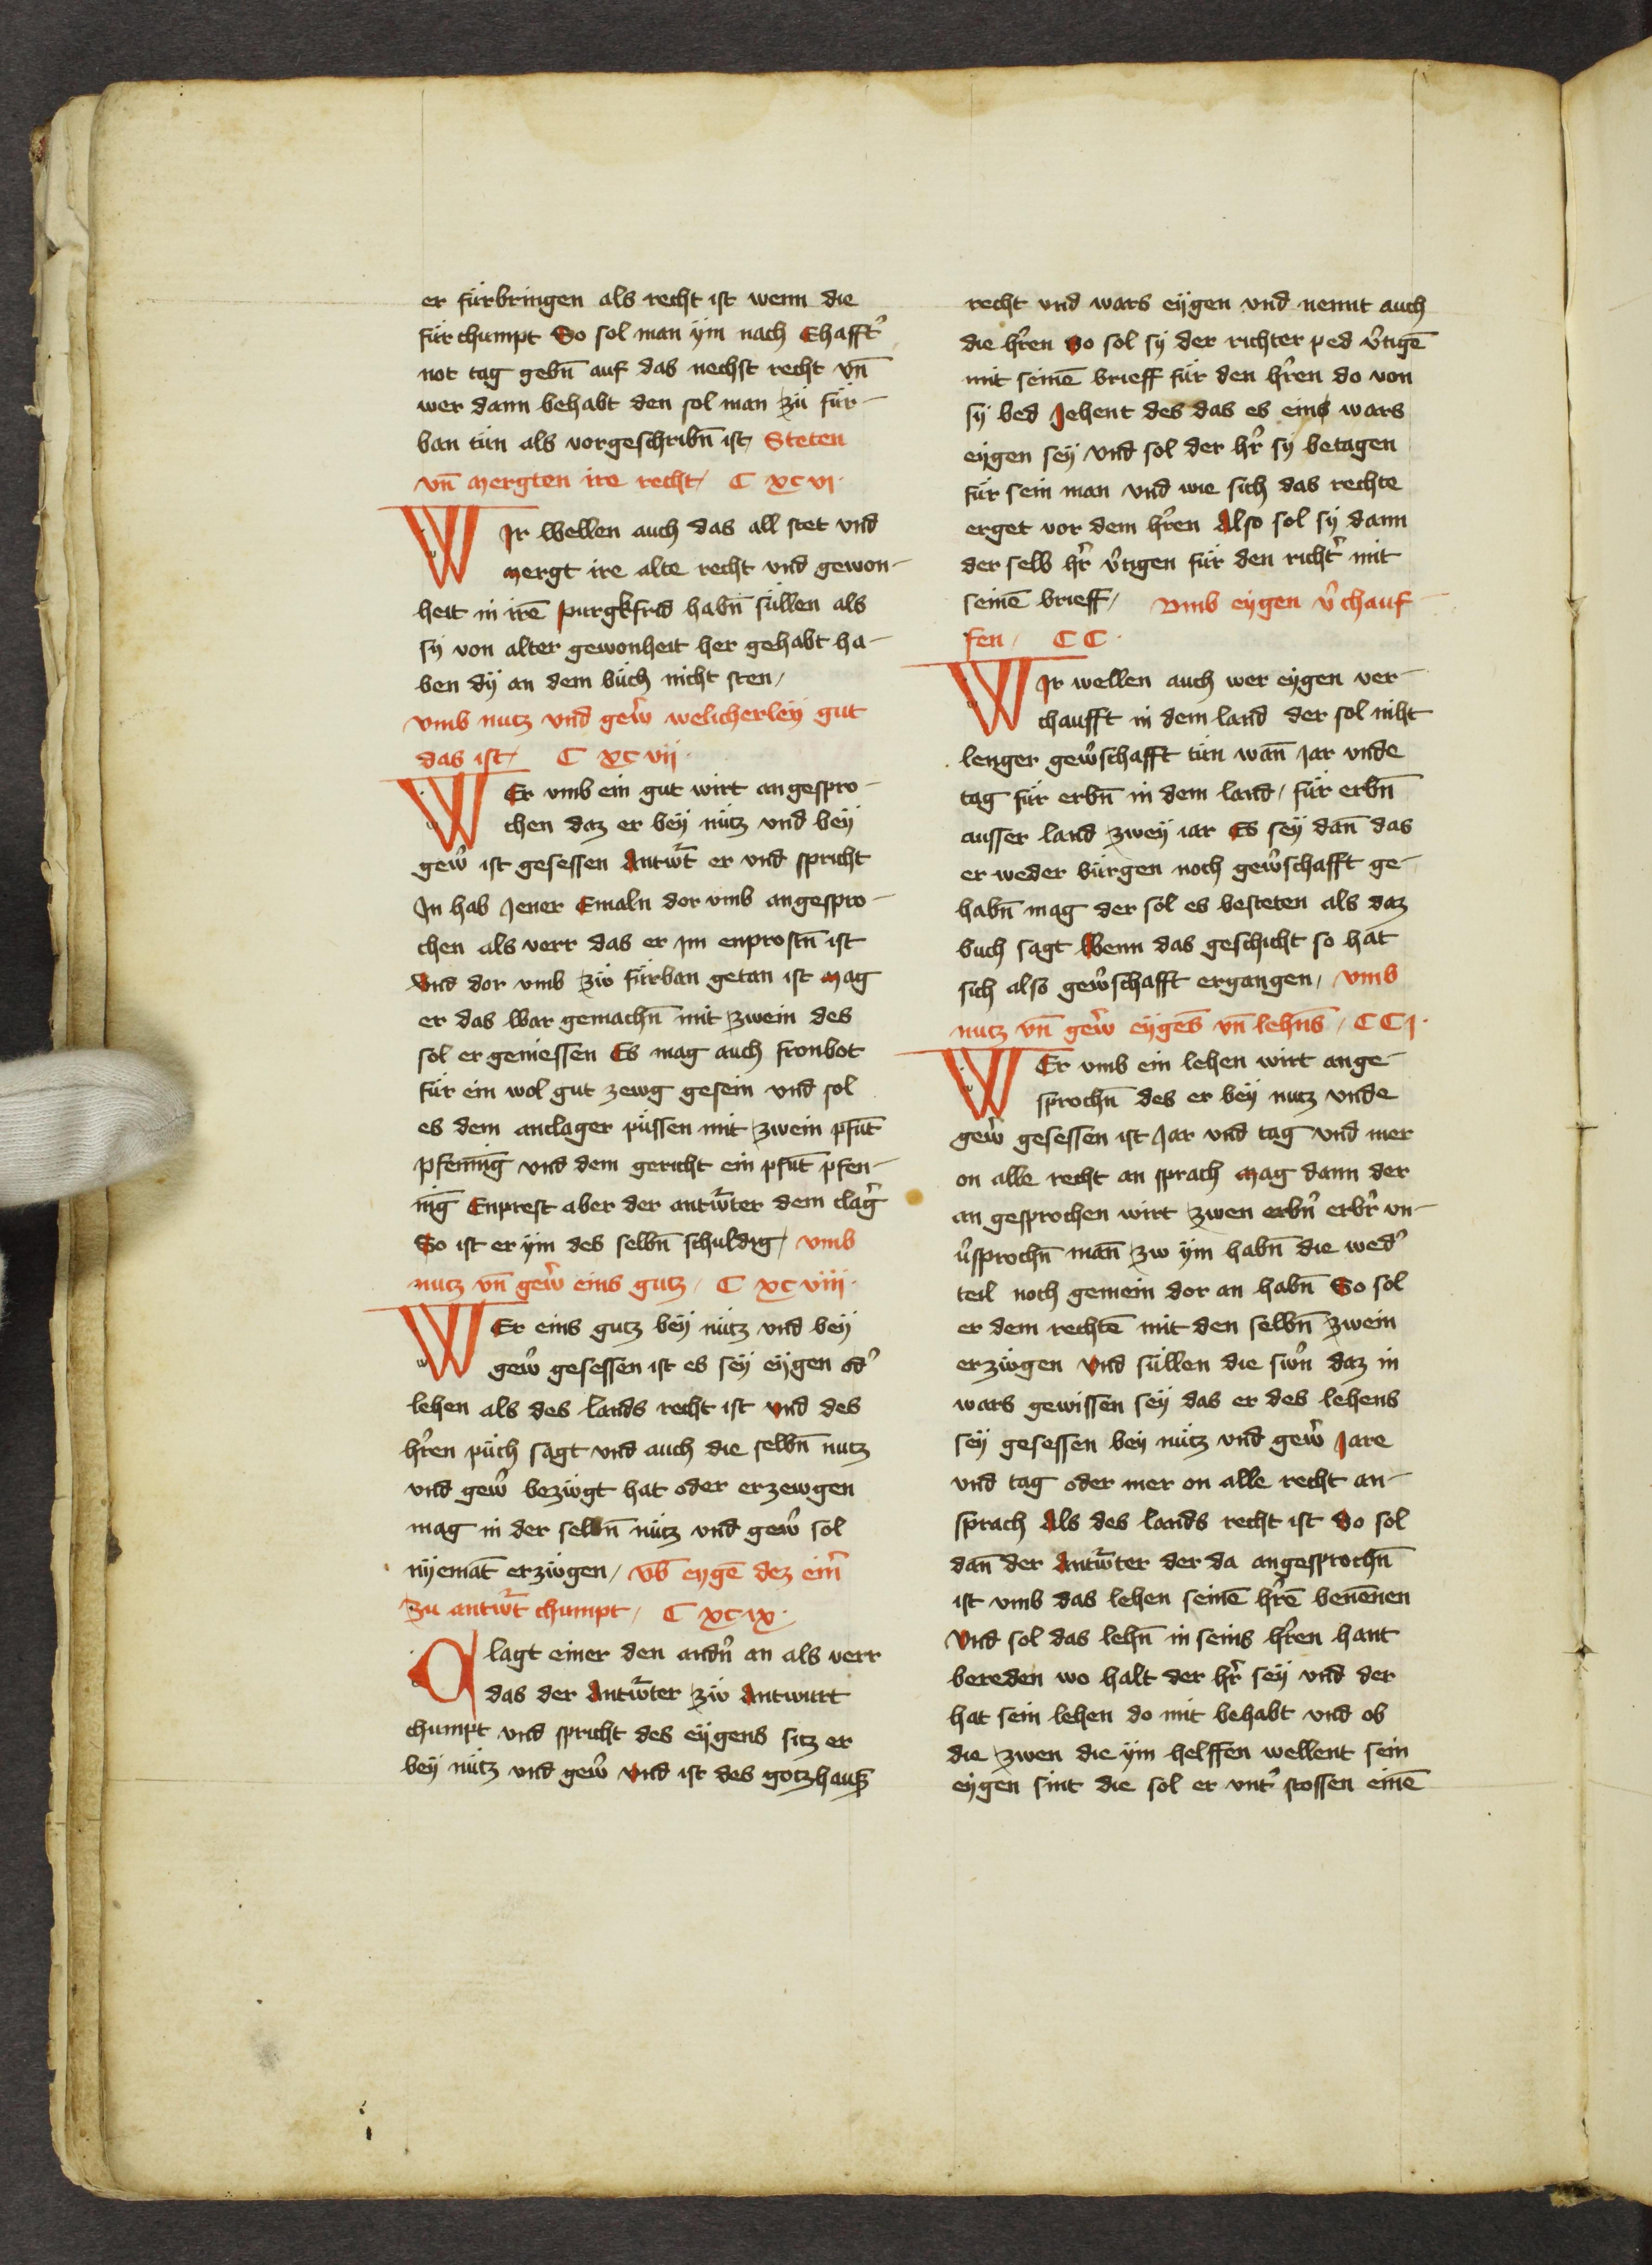 er fürbringen als recht ist wenn die
für chumpt So sol man ÿm nach Ehafft̾
not tag gebn̄ auf das nechst recht vn̄
wer dann behabt den sol man zü für-
ban tün als vorgeschribn̄ ist / Steten
vn̄ mergten ire recht / C xc vi ·
WIr wellen auch das all stet vnd
mergt ire alte recht vnd gewon-
heit in irē purgkfrid habn̄ süllen als
sÿ von alter gewonheit her gehabt ha-
ben dÿ an dem büch nicht sten /
vmb nutz vnd gew̾ welicherleÿ gut
das ist / C xc vij ·
WEr vmb ein gut wirt angespro-
chen daz er beÿ nütz vnd beÿ
gew̾ ist gesessen Antw̾t er vnd spricht
In hab Jener Emaln dor vmb angespro-
chen als verr das er im enprostn̄ ist
vnd dor vmb zw fürban getan ist mag
er das war gemachn̄ mit zwein des
sol er geniessen Es mag auch fronbot
für ein wol gut zewg gesein vnd sol
es dem anclager püssen mit zwein pfūt
pfenīg vnd dem gericht ein pfūt pfen-
īg Enprest aber der antw̾ter dem clag̾
So ist er ÿm des selbn̄ schuldig / vmb
nutz vn̄ gew̾ eins gutz / C xc viij ·
WEr eins gutz beÿ nütz vnd beÿ
gew̾ gesessen ist es seÿ eÿgen od̾
lehen als des lands recht ist vnd des
hr̾en püch sagt vnd auch die selbn̄ nutz
vnd gew̾ bezwgt hat oder erzewgen
mag in der selbn̄ nütz vnd gew̾ sol
nÿemāt erzwgen / vb̄ eygē dez eim̾
zu antw̾t chumpt / C xc ix ·
Clagt einer den andn̾ an als verr
das der Antw̾ter zw Antwurt
chumpt vnd spricht des eÿgens sitz er
beÿ nütz vnd gew̾ vnd ist des gotzhauß
recht vnd wars eÿgen vnd nennt auch
die hr̾en So sol sÿ der richter ped v̾tigē
mit seinē brieff für den hr̾en do von
sÿ bed Jehent des das es eins wars
eÿgen seÿ vnd sol der hr̾ sÿ betagen
für sein man vnd wie sich das rechte
erget vor dem hr̾en Also sol sÿ dann
der selb hr̾ v̾tigen für den richt̾ mit
seinē brieff / vmb eÿgen v̾chauf-
fen / C C ·
WIr wellen auch wer eÿgen ver-
chaufft in dem land der sol niht
lenger gew̾schafft tün wan̄ Jar vnde
tag für erbn̄ in dem land / für erbn̄
ausser land zweÿ iar Es seÿ dan̄ das
er weder bürgen noch gew̾schafft ge-
habn̄ mag der sol es besteten als daz
buch sagt Wenn das geschicht so hat
sich also gew̾schafft ergangen / vmb
nutz vn̄ gew̾ eÿgēs vn̄ lehn̄s / C C j ·
WEr vmb ein lehen wirt ange-
sprochn̄ des er beÿ nutz vnde
gew̾ gesessen ist Jar vnd tag vnd mer
on alle recht an sprach mag dann der
an gesprochen wirt zwen erbn̾ erbr̾ vn-
v̾sprochn̄ man̄ zw ÿm habn̄ die wed̾
teil noch gemein dor an habn̄ So sol
er dem rechtē mit den selbn̄ zwein
erzwgen vnd süllen die swn̾ daz in
wars gewissen seÿ das er des lehens
seÿ gesessen beÿ nütz vnd gew̾ Jare
vnd tag oder mer on alle recht an-
sprach Als des lands recht ist So sol
dan̄ der Antw̾ter der da angesprochn̄
ist vmb das lehen seinē hr̾ē benēnen
vnd sol das lehn̄ in seins hr̾en hant
bereden wo halt der hr̾ seÿ vnd der
hat sein lehen do mit behabt vnd ob
die zwen die ÿm helffen wellent sein
eÿgen sint die sol er vnt̾ stossen einē